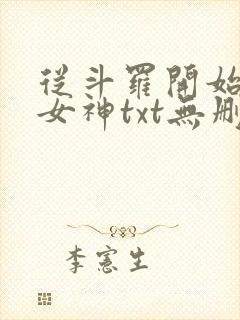 從斗羅開始
女神txt無刪
李憲生